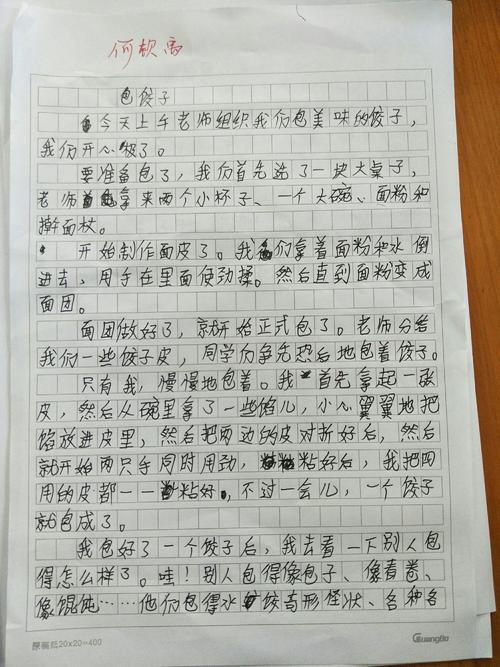 何
包饺子
今天上午老师组织我们包美味的饺子，
我们开心极了。
要准备包了，我们首先选了一块大桌子，
老师拿来两个小杯子、一个大碗、面粉和
擀面杖。
开始制作面皮了。我们拿着面粉和水倒
进去，用手在里面使劲揉。然后直到面粉变成
面团。
面团做好了，就开始正式包了。老师分给
我们一些饺子皮，同学们争先恐后地包着饺子。
只有我，慢慢地包着。我首先拿起一张
皮，然后从碗里拿了一些馅儿，小心翼翼地把
馅放进皮里，然后把两边的皮对折好后，然后
就开始两只手同时用劲，粘好后，我把四
周的皮都一一粘好。不过一会儿，一个饺子
就包成了。
我包好了一个饺子后，我去看一下别人包
得怎么样了。哇！别人包得像包子、像春卷、
像馄饨……他们包得水饺奇形怪状、各种各
原稿纸20×20=400
GuangBo